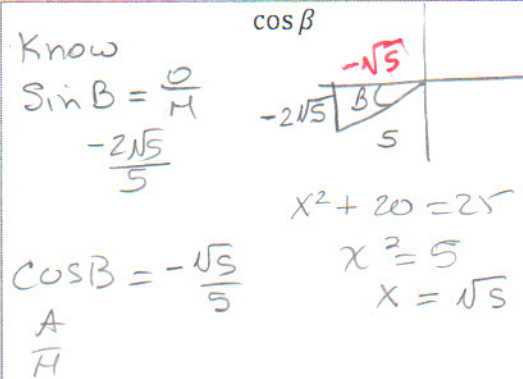 cos β
Know
Sin B = O/H
-2√5/5
-√5
-2√5
B
5
x² + 20 = 25
x² = 5
x = √5
COSB = -√5/5
A/H